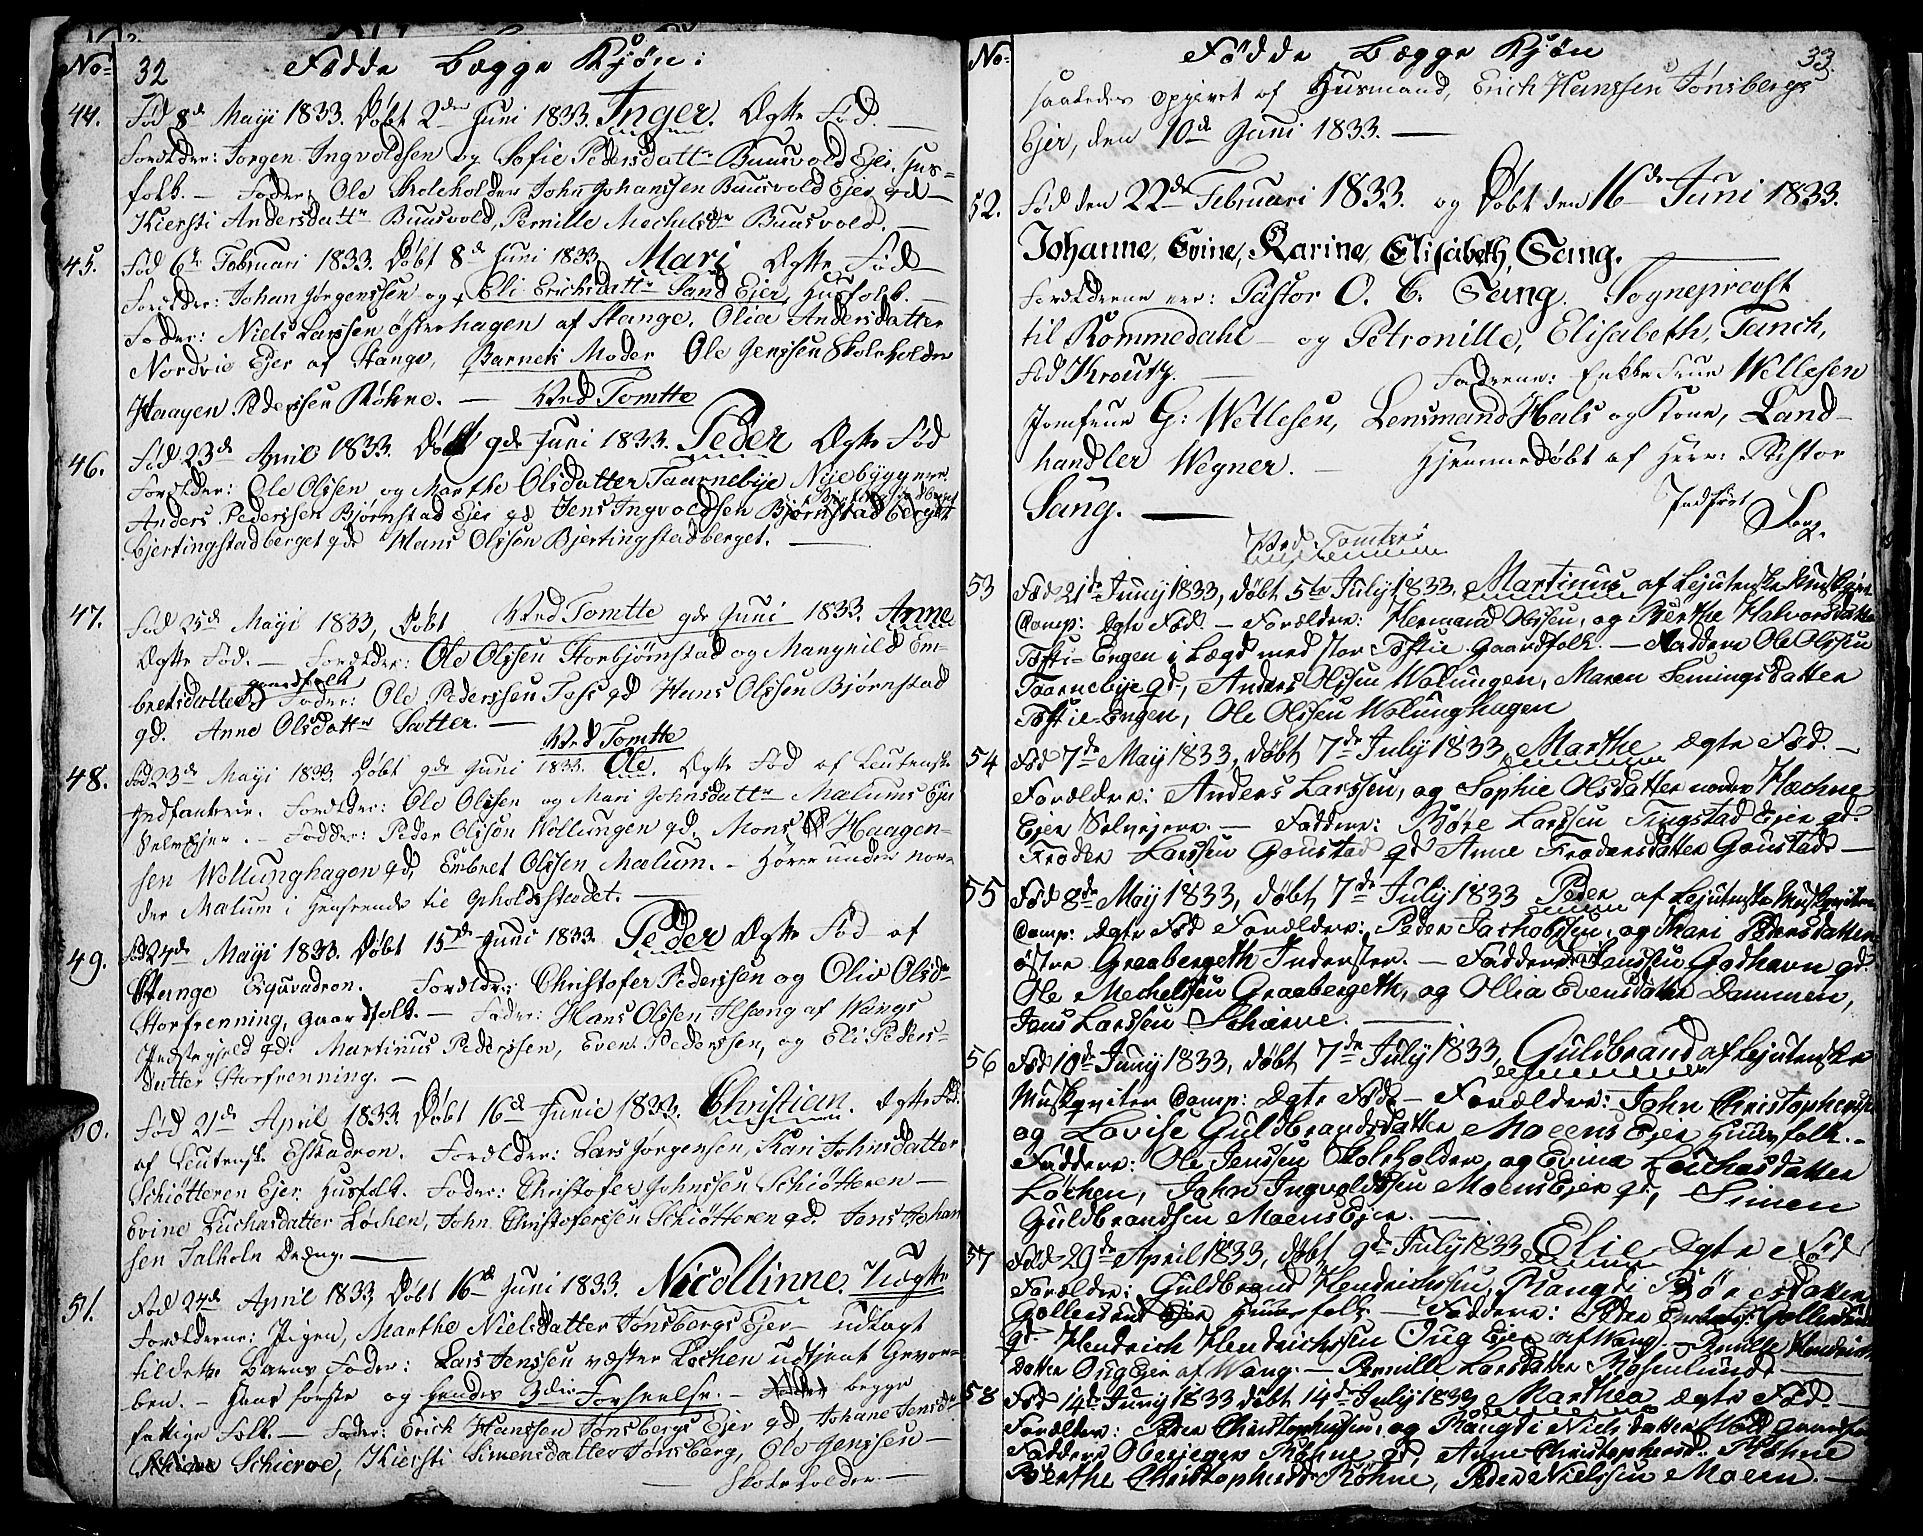 No: 32 Fødde begge Kjøn:
44. Fød 8de Mayi 1833. Døbt 2den Juni 1833. Inger. Ægte Fød. —
Forælder: Jorgen Ingvoldsen og Sofie Pedersdattr Buusvold Ejer, Hus-
folk. — Fadder: Ole Skoleholder John Johanssen Buusvold Ejer gd —
Kiersti Andersdattr Buusvold, Pernille Mechelsdr Buusvold. —
45. Fød 6te Februari 1833. Døbt 8de Juni 1833. Mari Ægte Fød —
Forælder: Johan Jørgenssen og Eli Erichsdattr Sand Ejer, Husfolk. —
Fadder: Niels Larssen østerhagen af Stange. Olia Andersdatter
Nordvie Ejer af Stange, Barnets Moder Ole Jenssen Skoleholder
Haagen Pederssen Røhne. — Ved Tomtte
46. Fød 23de April 1833. Døbt 9de Juni 1833. Peder Ægte Fød
Forælder: Ole Olssen og Marthe Olsdatter Taarnebye Nyebyggere.
Anders Pederssen Bjørnstad Ejer gd Jens Ingvoldsen Bjørnstadberget
Bjertingstadberget gd Hans Olsson Bjertingstadberget. —
47. Fød 25de Mayi 1833, Døbt Ved Tomtte 9de Juni 1833. Anne
Ægte Fød. — Forælder: Ole Olssen Storbjørnstad og Mangnild Em-
bretsdatter gaardfolk Fadder: Ole Pederssen Tofs gd Hans Olssen Bjørnstad
gd. Anne Olsdattr Sætter. —
Ved Tomtte
48. Fød 23de Mayi 1833. Døbt 9de Juni 1833. Ole. Ægte Fød af Leutenske
Indfanterie. Forælder: Ole Olssen og Mari Johnsdattr Mælums Ejer
Selvejer. — Fadder: Peder Olsson Wollungen gd, Mons Haagen-
sen Wollunghagen gd, Embret Olssen Mælum. — Hører under nor-
dre Mælum i Henseende til Opholdsstædet. —
49. Fød 24de Mayi 1833. Døbt 15de Juni 1833. Peder Ægte Fød af
Stange Esquvadron. Forælder: Christofer Pederssen og Olia Olsdr
Storfrenning, gaardfolk. — Fadder: Hans Olssen Ilseng af Wangs
Præstegjeld gd: Martinus Pederssen, Even Pederssen, og Eli Peders-
datter Storfrenning. —
50. Fød 21de April 1833. Døbt 16de Junie 1833. Christian. Ægte Fød.
af Leutensk Eskadron. Forælder: Lars Jorgensen, Kari Johnsdatter
Schiøtteren Ejer, Husfolk. Fadder: Christofer Johnssen Schiøtteren —
Evine Luchasdatter Løchen, John Christofersen Schiøtteren gd. Jens Johan
sen Salholn Dræng. —
51. Fød 24de April 1833, Døbt 16de Juni 1833. Nicollinne. Uægte
Forælderne: Pigen, Marthe Nielsdatter Tønsbergs Ejer — udlagt
til dette Barns Fader: Lars Jenssen væster Løchen udtjent Gevor-
ben. — Hans første og Hendes 3die Forseelse. — begge
fattige Folk. — Fadder: Erich Hanssen Tønsbergs Ejer gd, Johane Jensdr
Schierve, Kiersti Simensdatter Tønsberg, Ole Jenssen —
Skoleholder —
No: Fødde begge Kjøn 33.
saaledes opgivet af Husmand, Erich Hanssen Tønsbergs
Ejer, den 10de Juni 1833. —
52. Fød den 22de Februari 1833. og Døbt den 16de Juni 1833.
Johanne, Evine, Karine, Elisabeth, Sang. —
Forælderne ere: Pastor O. C. Sang. Sognepræst
til Rommedahl — og Petronille, Elisabeth, Tanch,
fød Kroutz. — Fadderne: Enkke Frue Wellesen
Jomfrue G: Wellesen, Lensmand Hals og Kone, Land-
handler Wegner. — Hjemmedøbt af Herr: Pastor
Sang. — Indført Sang.
Ved Tomter
53 Fød 21de Juny 1833, døbt 5te July 1833. Martinus af Lejutenske Muskqviter
Comp: Ægte Fød. — Forælder: Hermand Olssen, og Berthe Halvorsdatter
Toftie-Engen i Lægd med stor Toftie. Gaardfolk. — Faddere Ole Olssen
Taarnebye gd, Anders Olssen Wolungen, Maren Semingsdatter
Toftie-Engen, Ole Olssen Wolunghagen
54 Fød 7de May 1833, døbt 7de July 1833, Marthe Ægte Fød. —
Forælder: Anders Larssen, og Sophie Olsdatter nordre Hæchne
Ejer Selvejere. — Faddere: Børe Larssen Tingstad Ejer gd.
Froder Larssen Gaustad gd Anne Frodersdatter Gaustad —
55 Fød 8de May 1833, døbt 7de July 1833 Peder af Lejutenske Muskqviter
Comp: Ægte Fød Forælder: Peder Jachobsen, og Kari Pedersdatter
østre Graabergeth Inderster. — Faddere Jenssen Godhavn gd.
Ole Mechelssen Graabergeth, og Ollia Evensdatter Dammen,
Jens Larssen Schierve. —
56 Fød 10de Juny 1833, døbt 7de July 1833, Guldbrand af Lejutenske
Muskqviter Comp: Ægte Fød — Forælder: John Christophersen
og Lovise Guldbrandsdatter Moeens Ejer Huusfolk. —
Faddere: Ole Jenssen Skoleholder, og Evina Luchasdatter
Løchen, John Ingvoldssen Moens Ejer gd, Simen
Guldbrandsen Moens Ejer. —
57 Fød 29de April 1833, døbt 9de July 1833 Elie Ægte Fød
Forælder: Guldbrand Hendrichssen, Rangdi Børresdatter
Gollerud Ejer Huusfolk — Faddere: Peder Gollerud
gd Hendrich Hendrichssen Ouig Ejer af Wang — Pernille Hendrich
datter Ouig Ejer af Wang. — Pernille Larsdatter Rosenlund —
58 Fød 14de Juny 1833 døbt 14de July 1833 Marthea Ægte Fød. —
Forælder: Peder Christophersen, og Rangdi Nielsdatter Gaardfolk
Faddere Ole Røhne gd, Anne Christophersd: Røhne
Berthe Christophersd: Røhne, Peder Nielssen Moeen. —